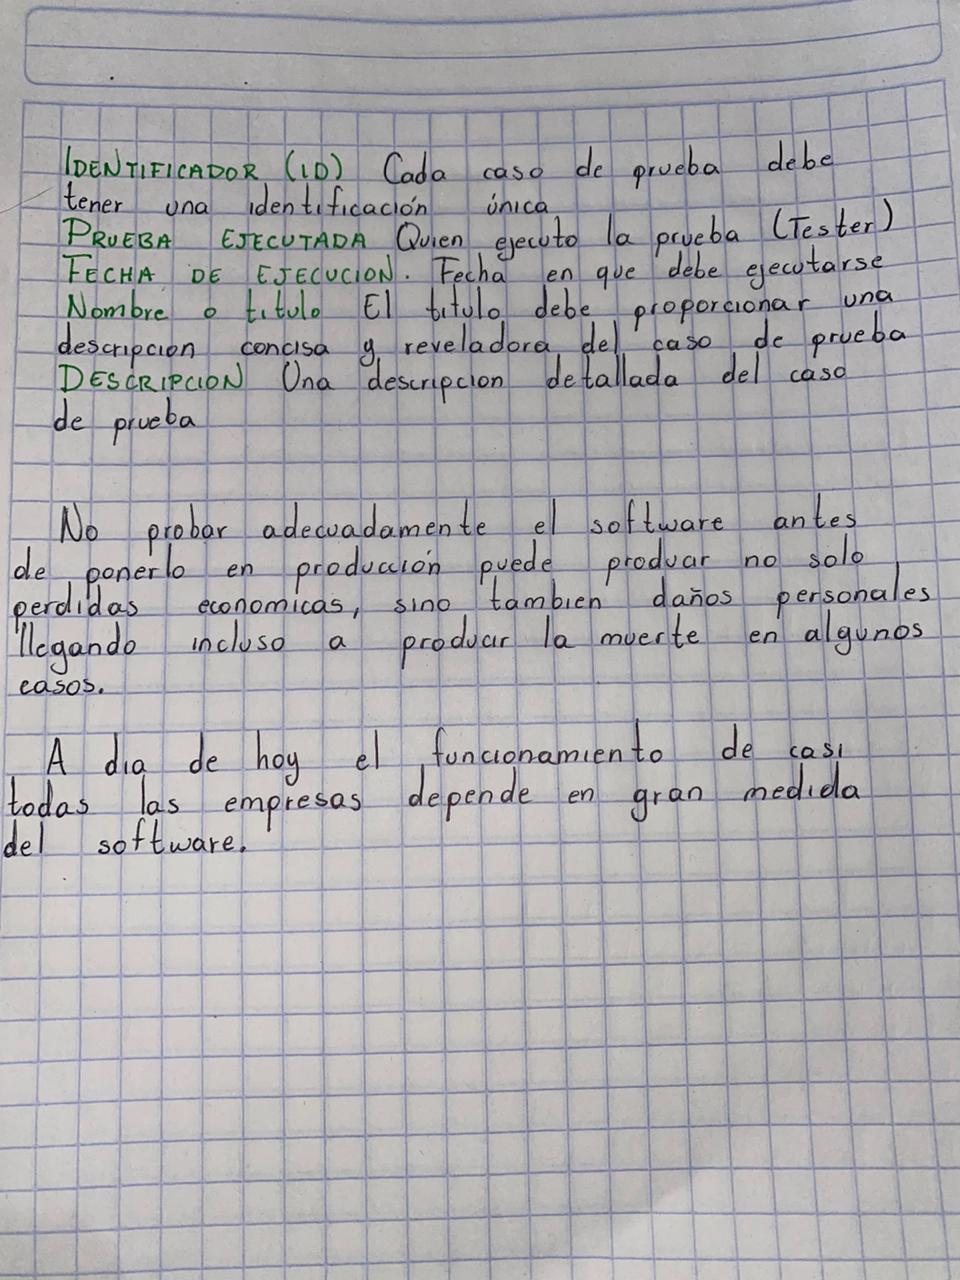 IDENTIFICADOR (ID) Cada caso de prueba debe
tener una identificación única
PRUEBA EJECUTADA Quien ejecuto la prueba (Tester)
FECHA DE EJECUCION. Fecha en que debe ejecutarse
Nombre o titulo El titulo debe proporcionar una
descripcion concisa y reveladora del caso de prueba
DESCRIPCION Una descripcion detallada del caso
de prueba
No probar adecuadamente el software antes
de ponerlo en producción puede producir no solo
perdidas economicas, sino tambien daños personales
llegando incluso a producir la muerte en algunos
casos.
A dia de hoy el funcionamiento de casi
todas las empresas depende en gran medida
del software.